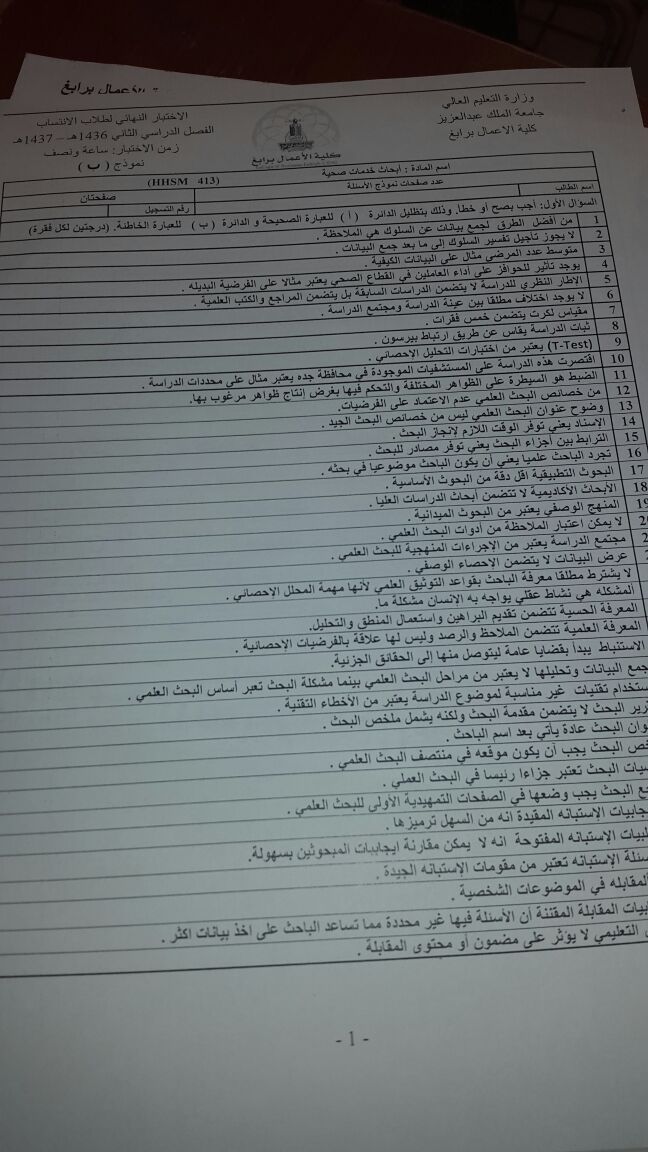 أعمال برابغ
وزارة التعليم العالي
جامعة الملك عبدالعزيز
كلية الاعمال برابغ
كلية الأعمال برابغ
الاختبار النهائي لطلاب الانتساب
الفصل الدراسي الثاني 1436هـ – 1437هـ
زمن الاختبار: ساعة ونصف
نموذج ( ب )
اسم المادة : أبحاث خدمات صحية (HHSM 413)
عدد صفحات نموذج الأسئلة صفحتان
اسم الطالب رقم التسجيل
السؤال الأول: أجب بصح أو خطأ، وذلك بتظليل الدائرة ( أ ) للعبارة الصحيحة و الدائرة ( ب ) للعبارة الخاطئة. (درجتين لكل فقرة)
1 من أفضل الطرق لجمع بيانات عن السلوك هي الملاحظة .
2 لا يجوز تأجيل تفسير السلوك إلى ما بعد جمع البيانات .
3 متوسط عدد المرضى مثال على البيانات الكيفية .
4 يوجد تأثير للحوافز على أداء العاملين في القطاع الصحي يعتبر مثالا على الفرضية البديله .
5 الإطار النظري للدراسة لا يتضمن الدراسات السابقة بل يتضمن المراجع والكتب العلمية .
6 لا يوجد اختلاف مطلقا بين عينة الدراسة ومجتمع الدراسة .
7 مقياس لكرت يتضمن خمس فقرات .
8 ثبات الدراسة يقاس عن طريق ارتباط بيرسون .
9 (T-Test) يعتبر من اختبارات التحليل الإحصائي .
10 اقتصرت هذه الدراسة على المستشفيات الموجودة في محافظة جده يعتبر مثال على محددات الدراسة .
11 الضبط هو السيطرة على الظواهر المختلفة والتحكم فيها بغرض إنتاج ظواهر مرغوب بها.
12 من خصائص البحث العلمي عدم الاعتماد على الفرضيات.
13 وضوح عنوان البحث العلمي ليس من خصائص البحث الجيد .
14 الاسناد يعني توفر الوقت اللازم لإنجاز البحث .
15 الترابط بين أجزاء البحث يعني توفر مصادر للبحث .
16 تجرد الباحث علميا يعني أن يكون الباحث موضوعيا في بحثه .
17 البحوث التطبيقية اقل دقة من البحوث الأساسية .
18 الأبحاث الأكاديمية لا تتضمن أبحاث الدراسات العليا .
المنهج الوصفي يعتبر من البحوث الميدانية .
لا يمكن اعتبار الملاحظة من أدوات البحث العلمي .
مجتمع الدراسة يعتبر من الإجراءات المنهجية للبحث العلمي .
عرض البيانات لا يتضمن الإحصاء الوصفي .
لا يشترط مطلقا معرفة الباحث بقواعد التوثيق العلمي لأنها مهمة المحلل الإحصائي .
المشكله هي نشاط عقلي يواجه به الإنسان مشكلة ما.
المعرفة الحسية تتضمن تقديم البراهين واستعمال المنطق والتحليل.
المعرفة العلمية تتضمن الملاحظ والرصد وليس لها علاقة بالفرضيات الإحصائية .
الاستنباط يبدأ بقضايا عامة ليتوصل منها إلى الحقائق الجزئية.
جمع البيانات وتحليلها لا يعتبر من مراحل البحث العلمي بينما مشكلة البحث تعبر أساس البحث العلمي .
ستخدام تقنيات غير مناسبة لموضوع الدراسة يعتبر من الأخطاء التقنية .
رير البحث لا يتضمن مقدمة البحث ولكنه يشمل ملخص البحث .
وان البحث عادة يأتي بعد اسم الباحث .
خص البحث يجب أن يكون موقعه في منتصف البحث العلمي .
يات البحث تعتبر جزاءا رئيسا في البحث العملي .
ع البحث يجب وضعها في الصفحات التمهيدية الأولى للبحث العلمي .
جابيات الإستبانه المقيدة انه من السهل ترميزها .
لبيات الإستبانه المفتوحة انه لا يمكن مقارنة ايجابيات المبحوثين بسهولة.
سئلة الإستبانه تعتبر من مقومات الإستبانه الجيدة .
المقابله في الموضوعات الشخصية .
بيات المقابلة المقننة أن الأسئلة فيها غير محددة مما تساعد الباحث على اخذ بيانات اكثر .
التعليمي لا يؤثر على مضمون أو محتوى المقابلة .
- 1 -